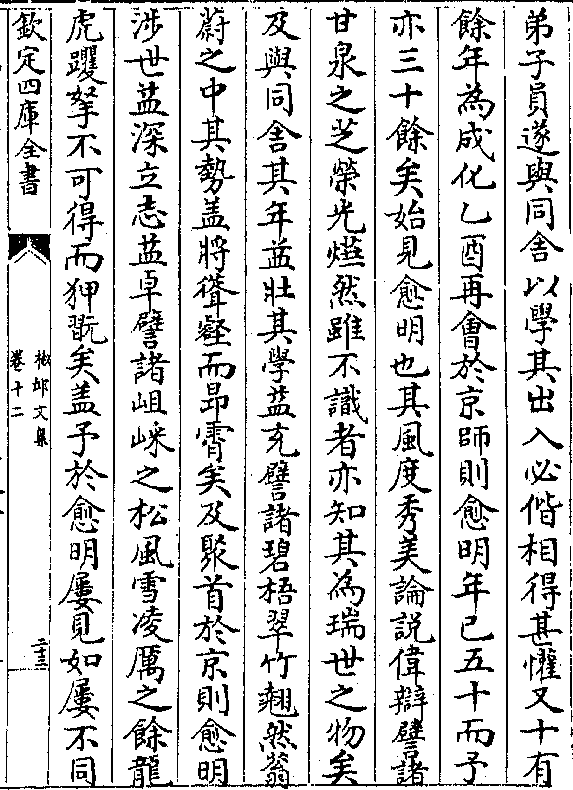 弟子員遂與同舎以學其出入必偕相得甚懽又十有
餘年為成化乙酉再會於京師則愈明年已五十而予
亦三十餘矣始見愈明也其風度秀美論說偉辯譬諸
甘泉之芝榮光燁然雖不識者亦知其為瑞世之物矣
及與同舎其年益壯其學益充譬諸碧梧翠竹翹然蓊
蔚之中其勢盖將聳壑而昂霄矣及聚首於京則愈明
渉世益深立志益卓譬諸岨崍之松風雪凌厲之餘龍
虎躩拏不可得而狎翫矣盖予於愈明屢見如屢不同
欽定四庫全書
文集
卷十二
二十三